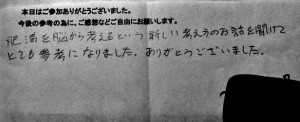 本日はご参加ありがとうございました。
今後の参考の為に、ご感想などご自由にお願いします。
肥満を脳から考えるという新しい考え方のお話を聞けて
とても参考になりました。ありがとうございました。